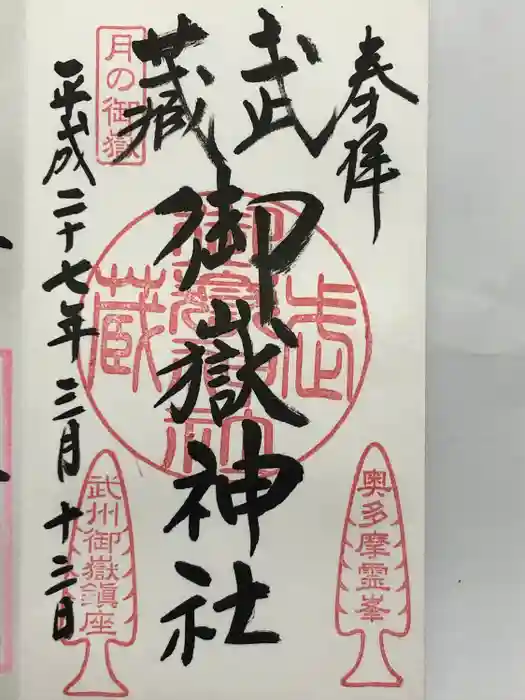 奉拝
武蔵
御嶽神社
平成二十七年三月十三日
月の御嶽
武蔵御嶽神社
奥多摩霊峯
武州御嶽鎮座